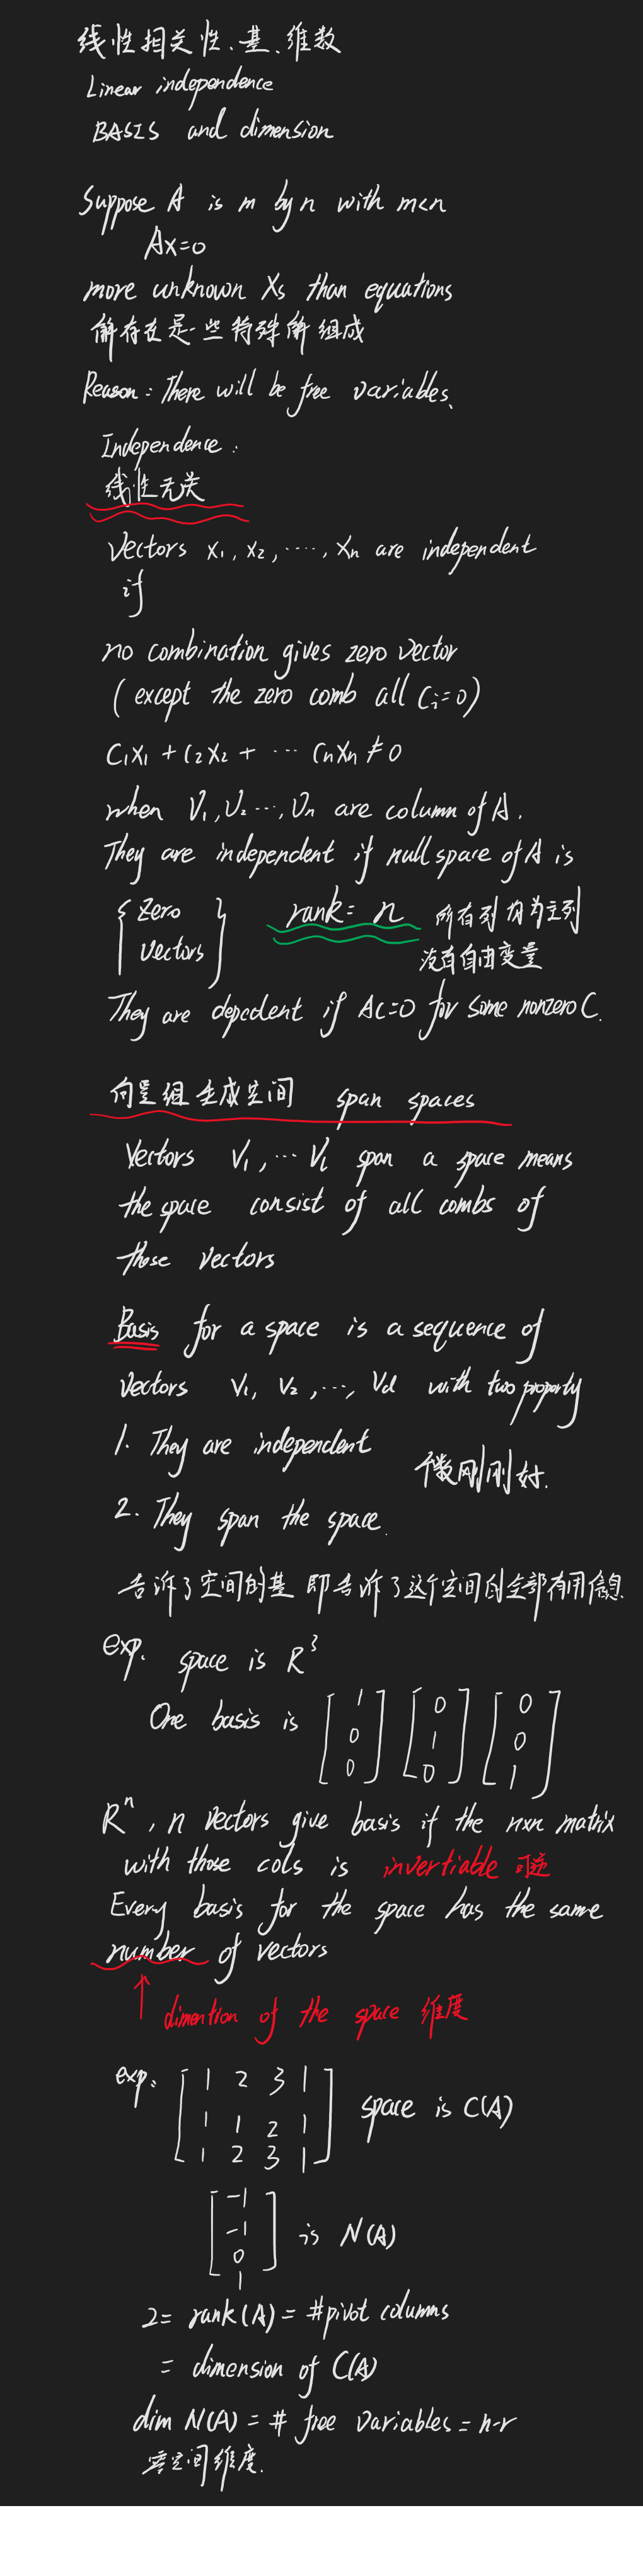 线性相关性、基、维数
Linear independence
BASIS and dimension
Suppose A is m by n with m<n
Ax=0
more unknown Xs than equations
解存在是一些特殊解组成
Reason: There will be free variables.
Independence:
线性无关
Vectors x₁, x₂, ····, xₙ are independent
if
no combination gives zero vector
(except the zero comb all Cᵢ=0)
C₁x₁ + C₂x₂ + ··· Cₙxₙ ≠ 0
when V₁, V₂ ···, Vₙ are column of A.
They are independent if nullspace of A is
{ zero vectors } rank = n 所有列均为主列
没有自由变量
They are depedent if Ac=0 for some nonzero C.
向量组生成空间 span spaces
Vectors V₁, ··· Vl span a space means
the space consist of all combs of
those vectors
Basis for a space is a sequence of
vectors V₁, V₂, ···, Vd with two property
1. They are independent
个数刚刚好.
2. They span the space.
告诉了空间的基 即告诉了这个空间的全部有用信息.
exp. space is R³
One basis is [1 0 0] [0 1 0] [0 0 1]
Rⁿ, n vectors give basis if the nxn matrix
with those cols is invertiable 可逆
Every basis for the space has the same
number of vectors
↑ dimention of the space 维度
exp: [1 2 3 1
1 1 2 1
1 2 3 1] space is C(A)
[-1
-1
0
1] is N(A)
2= rank(A) = #pivot columns
= dimension of C(A)
dim N(A) = # free variables = n-r
零空间维度.